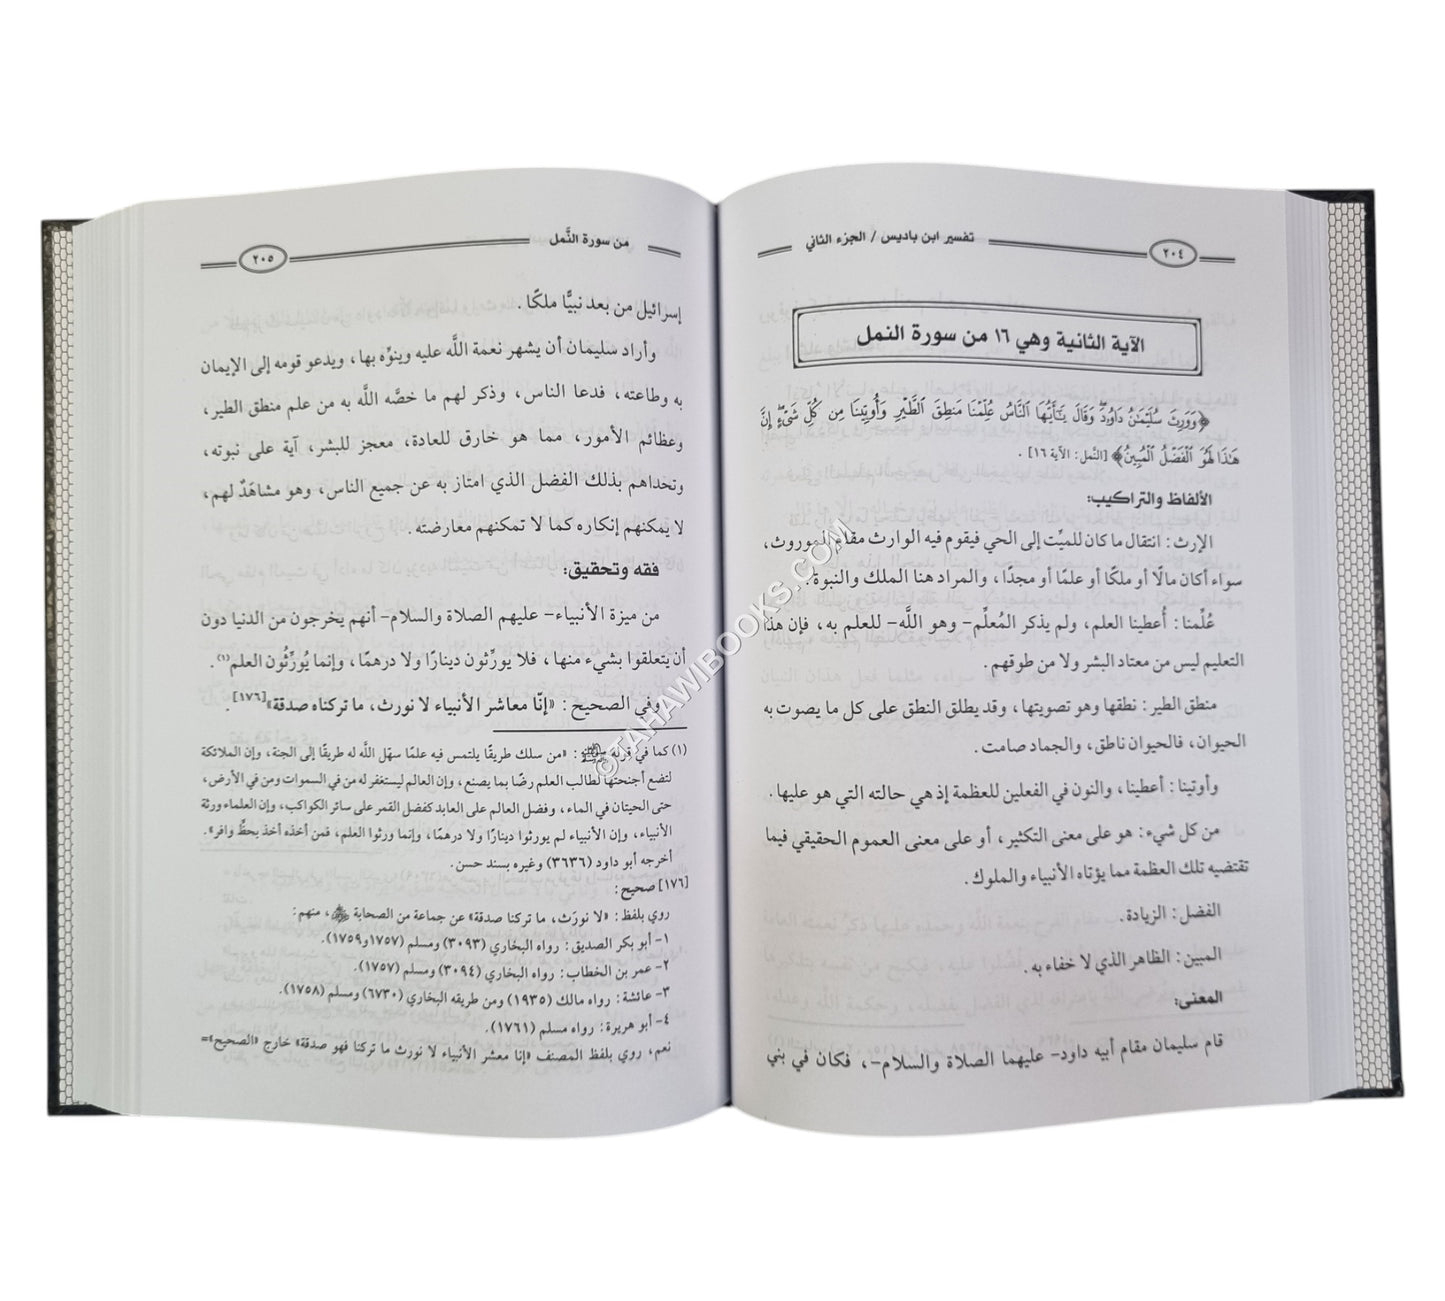 ٢٠٤
تفسير ابن باديس / الجزء الثاني
الآية الثانية وهي ١٦ من سورة النمل
﴿وَوَرِثَ سُلَيْمَٰنُ دَاوُۥدَۖ وَقَالَ يَٰٓأَيُّهَا ٱلنَّاسُ عُلِّمْنَا مَنطِقَ ٱلطَّيْرِ وَأُوتِينَا مِن كُلِّ شَىْءٍۖ إِنَّ
هَٰذَا لَهُوَ ٱلْفَضْلُ ٱلْمُبِينُ﴾ [النَّمل: الآية ١٦] .
الألفاظ والتراكيب:
الإرث : انتقال ما كان للميِّت إلى الحي فيقوم فيه الوارث مقام الموروث،
سواء أكان مالًا أو ملكًا أو علمًا أو مجدًا، والمراد هنا الملك والنبوة .
عُلِّمنا : أُعطينا العلم، ولم يذكر المُعلِّم- وهو اللَّه- للعلم به، فإن هذا
التعليم ليس من معتاد البشر ولا من طوقهم.
منطق الطير : نطقها وهو تصويتها، وقد يطلق النطق على كل ما يصوت به
الحيوان، فالحيوان ناطق، والجماد صامت.
وأوتينا : أعطينا، والنون في الفعلين للعظمة إذ هي حالته التي هو عليها.
من كل شيء : هو على معنى التكثير، أو على معنى العموم الحقيقي فيما
تقتضيه تلك العظمة مما يؤتاه الأنبياء والملوك.
الفضل : الزيادة.
المبين : الظاهر الذي لا خفاء به .
المعنى:
قام سليمان مقام أبيه داود- عليهما الصلاة والسلام-، فكان في بني
من سورة النَّمل
٢٠٥
إسرائيل من بعد نبيًّا ملكًا .
وأراد سليمان أن يشهر نعمة اللَّه عليه وينوِّه بها، ويدعو قومه إلى الإيمان
به وطاعته، فدعا الناس، وذكر لهم ما خصَّه اللَّه به من علم منطق الطير،
وعظائم الأمور، مما هو خارق للعادة، معجز للبشر، آية على نبوته،
وتحداهم بذلك الفضل الذي امتاز به عن جميع الناس، وهو مشاهَدٌ لهم،
لا يمكنهم إنكاره كما لا تمكنهم معارضته .
فقه وتحقيق:
من ميزة الأنبياء- عليهم الصلاة والسلام- أنهم يخرجون من الدنيا دون
أن يتعلقوا بشيء منها، فلا يورِّثون دينارًا ولا درهمًا، وإنما يُورِّثُون العلم(١).
وفي الصحيح : «إنّا معاشر الأنبياء لا نورث، ما تركناه صدقة»[١٧٦].
(١) كما في قوله ﷺ : «من سلك طريقًا يلتمس فيه علمًا سهّل اللَّه له طريقًا إلى الجنة، وإن الملائكة
لتضع أجنحتها لطالب العلم رضًا بما يصنع، وإن العالم ليستغفر له من في السموات ومن في الأرض،
حتى الحيتان في الماء، وفضل العالم على العابد كفضل القمر على سائر الكواكب، وإن العلماء ورثة
الأنبياء، وإن الأنبياء لم يورثوا دينارًا ولا درهمًا، وإنما ورثوا العلم، فمن أخذه أخذ بحظٍّ وافر».
أخرجه أبو داود (٣٦٣٦) وغيره بسند حسن.
[١٧٦] صحيح :
روي بلفظ : «لا نورَث، ما تركنا صدقة» عن جماعة من الصحابة ﷺ، منهم:
١- أبو بكر الصديق : رواه البخاري (٣٠٩٣) ومسلم (١٧٥٧و١٧٥٩).
٢- عمر بن الخطاب : رواه البخاري (٣٠٩٤) ومسلم (١٧٥٧).
٣- عائشة : رواه مالك (١٩٣٥) ومن طريقه البخاري (٦٧٣٠) ومسلم (١٧٥٨).
٤- أبو هريرة : رواه مسلم (١٧٦١).
نعم، روي بلفظ المصنف «إنا معشر الأنبياء لا نورث ما تركنا فهو صدقة» خارج «الصحيح»=
©TAHAWIBOOKS.COM